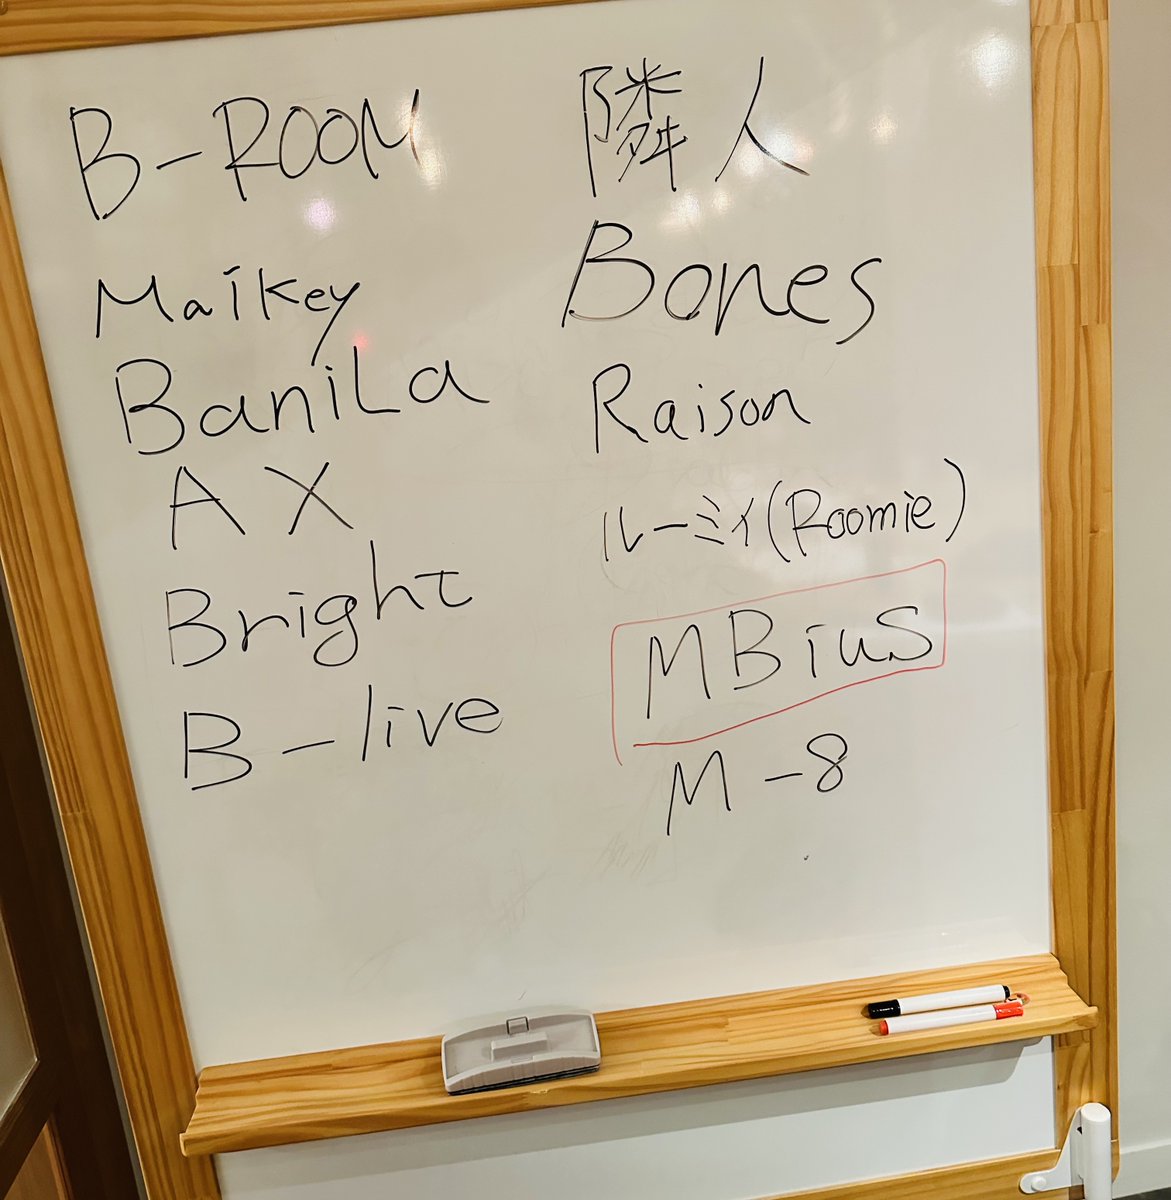 B-ROOM
Maikey
BaniLa
AX
Bright
B-live
隣人
Bones
Raison
ルーミィ(Roomie)
MBiuS
M-8